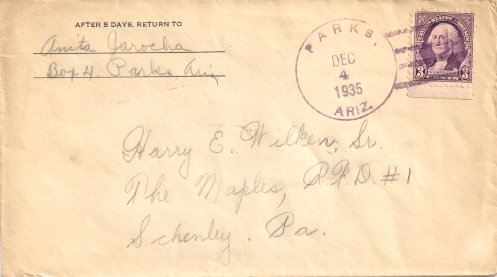 AFTER 5 DAYS, RETURN TO
Anita Jarocha
Box 4. Parks Ariz
PARKS,
DEC
4
1935
ARIZ.
3 3
Harry E. Wilken, Sr.
The Maples, R.F.D. #1
Schenley. Pa.